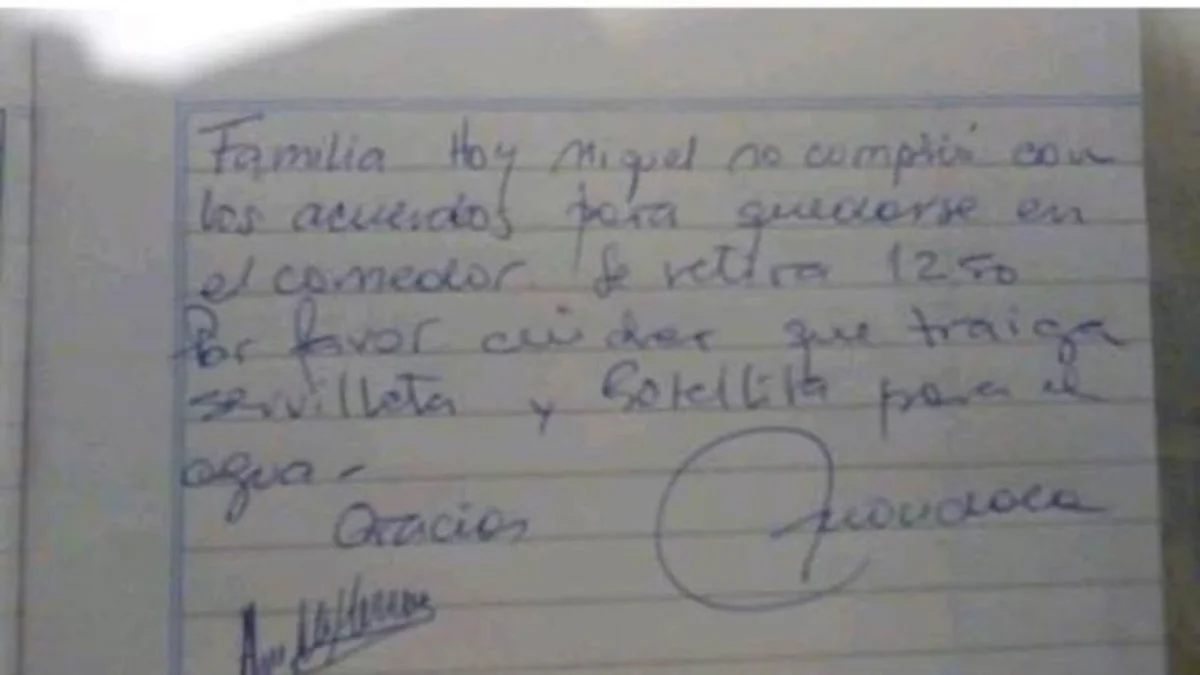 Familia Hoy Miguel no cumplió con
los acuerdos para quedarse en
el comedor. Se retira 1250
Por favor cuidar que traiga
servilleta y Botellita para el
agua-
Gracias